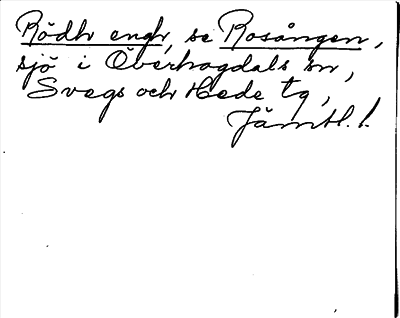 Rödh engh, se Rosången,
sjö i Överhogdals sn,
Svegs och Hede tg,
Jämtl. l.